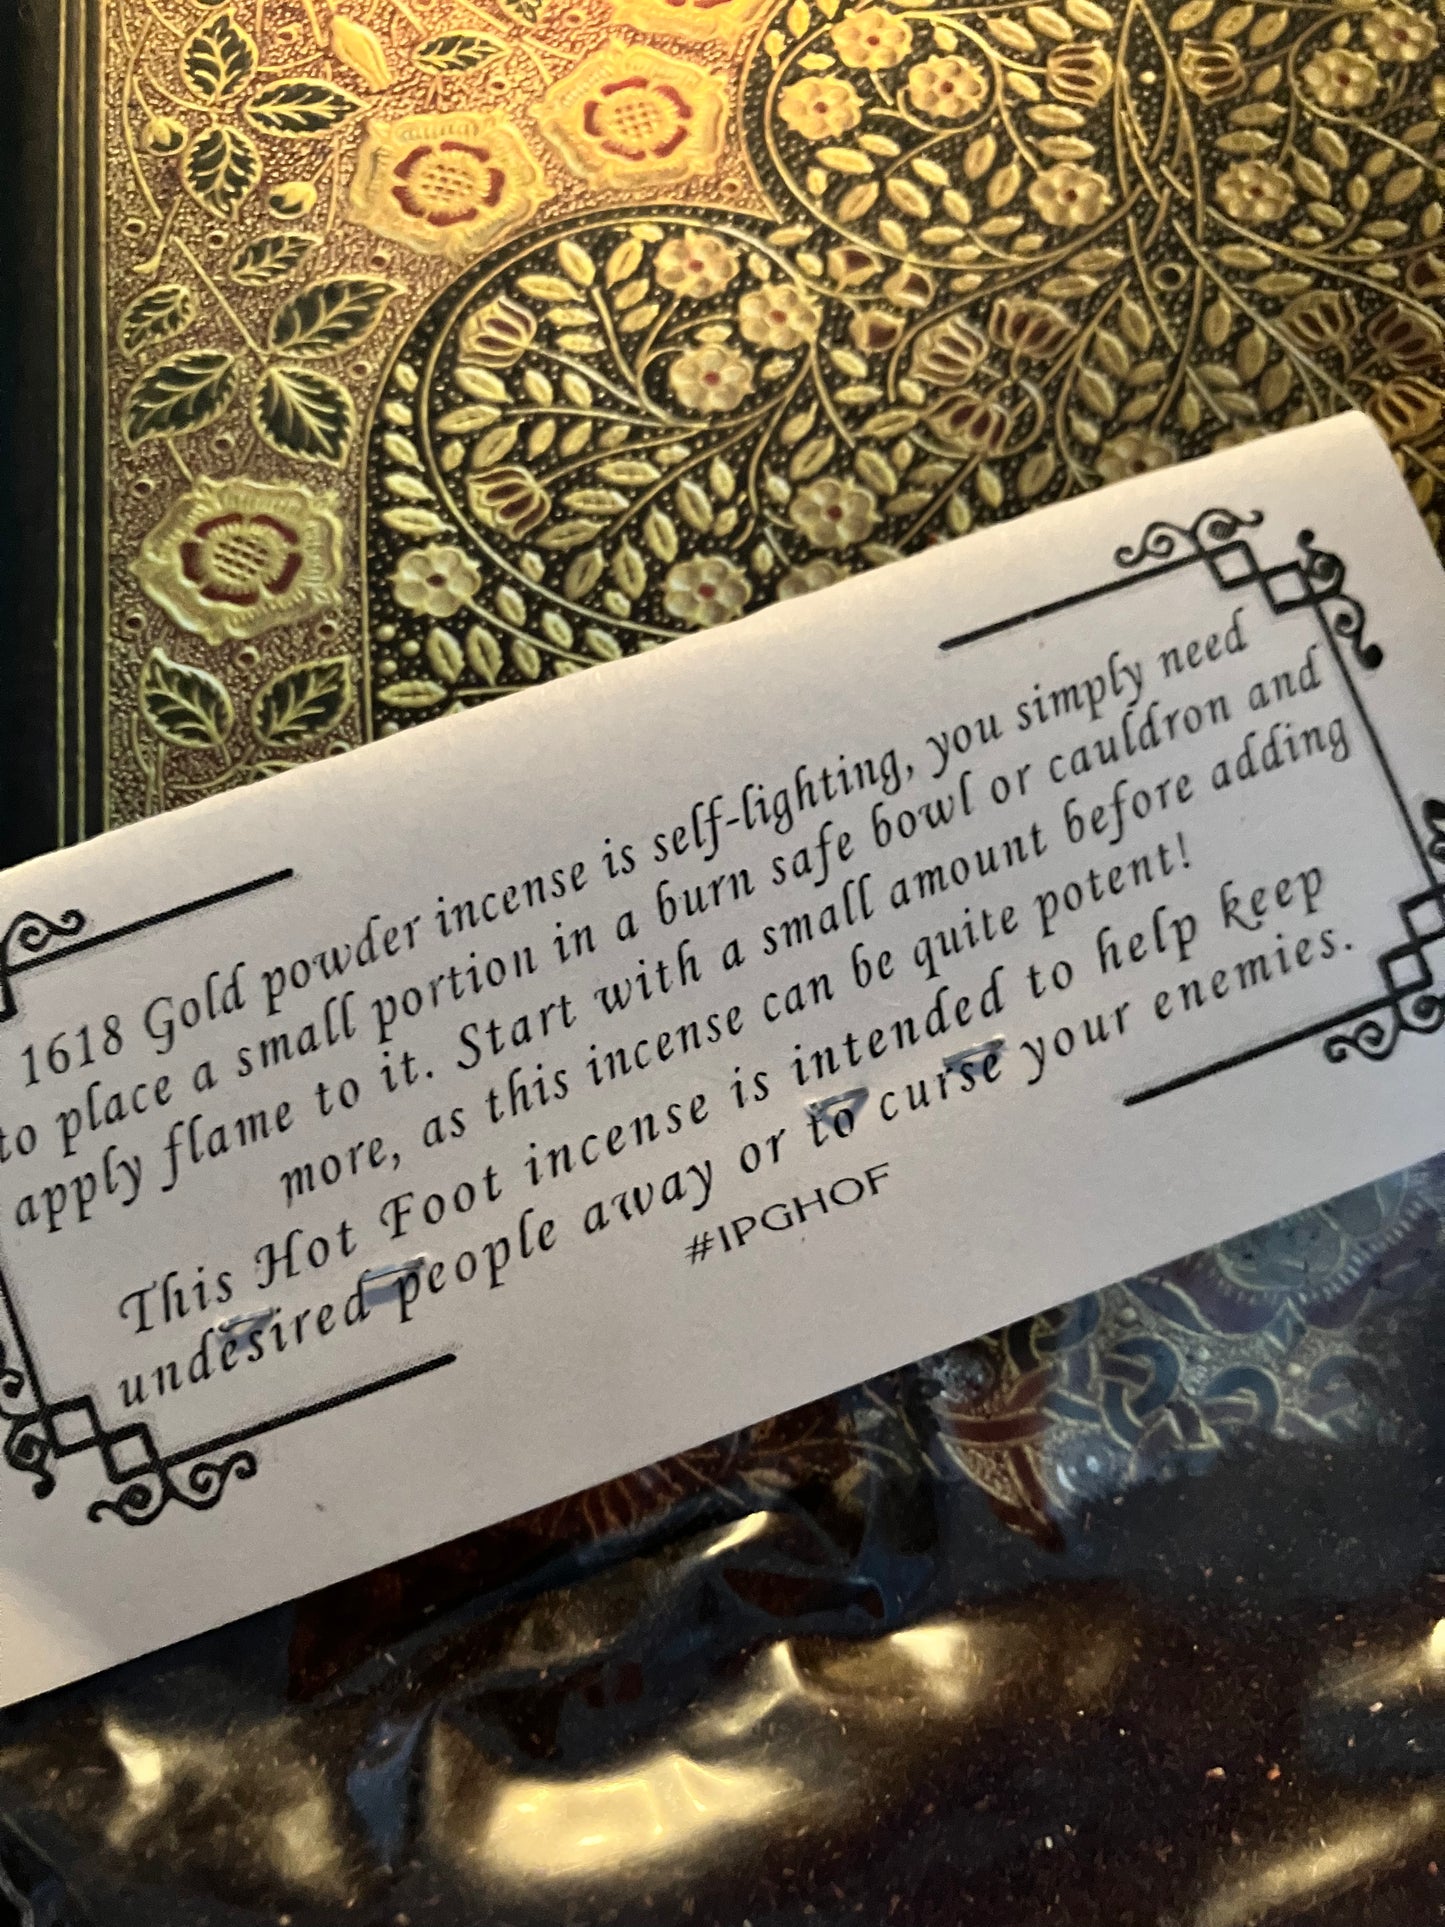 1618 Gold powder incense is self-lighting, you simply need
to place a small portion in a burn safe bowl or cauldron and
apply flame to it. Start with a small amount before adding
more, as this incense can be quite potent!
This Hot Foot incense is intended to help keep
undesired people away or to curse your enemies.
#IPGHOF